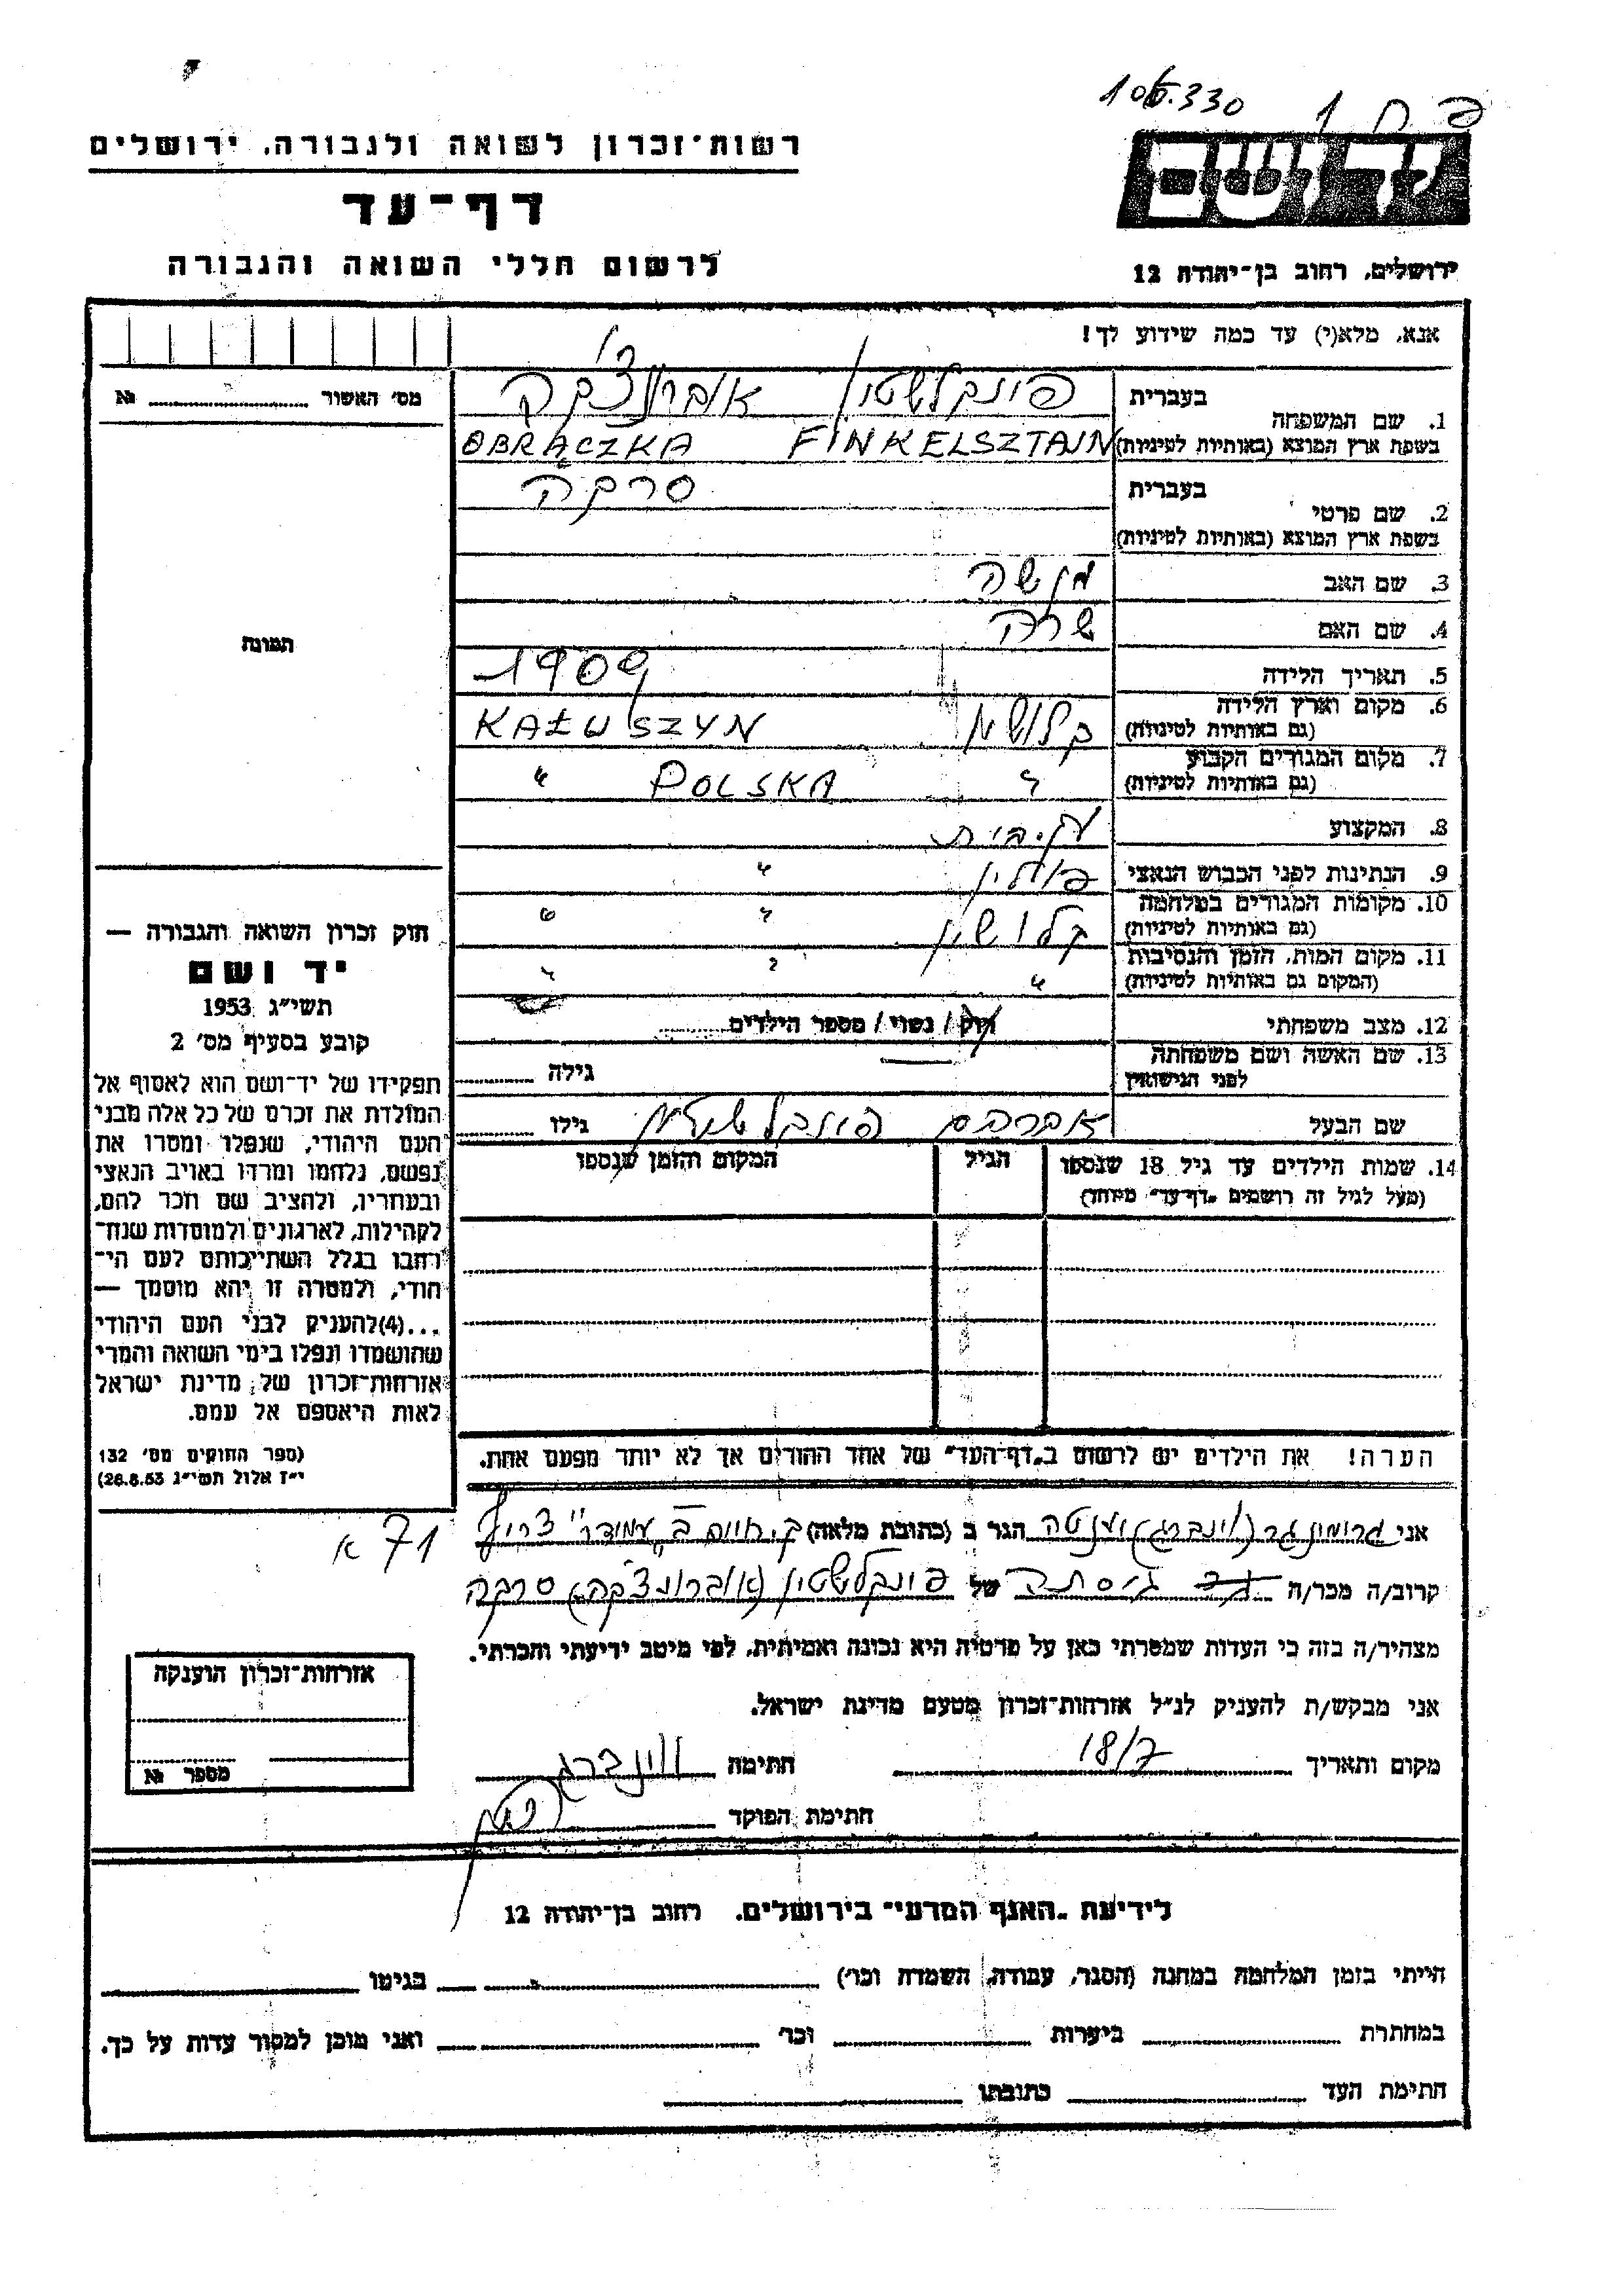 106.330
רשות-זכרון לשואה ולגבורה, ירושלים
דף-עד
לרשום חללי השואה והגבורה
יד ושם
ירושלים, רחוב בן-יהודה 12
אנא, מלא(י) עד כמה שידוע לך!
מס' האשור № 
1. שם המשפחה
בעברית פינקלשטין אוברונצ'קה
בשפת ארץ המוצא (באותיות לטיניות) FINKELSZTAJN OBRĄCZKA
2. שם פרטי
בעברית סרקה
בשפת ארץ המוצא (באותיות לטיניות)
3. שם האב מנשה
4. שם האם שרה
5. תאריך הלידה 1909
6. מקום וארץ הלידה (גם באותיות לטיניות) קלושין KAŁUSZYN
7. מקום המגורים הקבוע (גם באותיות לטיניות) " POLSKA "
8. המקצוע עק. בית
9. הנתינות לפני הכבוש הנאצי פולין "
10. מקומות המגורים במלחמה (גם באותיות לטיניות) קלושין " "
11. מקום המות, הזמן והנסיבות (המקום גם באותיות לטיניות) " " "
12. מצב משפחתי רוק / נשוי / מספר הילדים
13. שם האשה ושם משפחתה לפני הנישואין גילה
שם הבעל אברהם פינקלשטין גילו
14. שמות הילדים עד גיל 18 שנספו
(מעל לגיל זה רושמים "דף-עד" מיוחד)
הגיל
המקום והזמן שנספו
הערה! את הילדים יש לרשום ב"דף-העד" של אחד ההורים אך לא יותר מפעם אחת.
תמונה
חוק זכרון השואה והגבורה —
יד ושם
תשי"ג 1953
קובע בסעיף מס' 2
תפקידו של יד-ושם הוא לאסוף אל
המולדת את זכרם של כל אלה מבני
העם היהודי, שנפלו ומסרו את
נפשם, נלחמו ומרדו באויב הנאצי
ובעוזריו, ולהציב שם וזכר להם,
לקהילות, לארגונים ולמוסדות שנח-
רבו בגלל השתייכותם לעם הי-
הודי, ולמטרה זו יהא מוסמך —
...(4)להעניק לבני העם היהודי
שהושמדו ונפלו בימי השואה והמרי
אזרחות-זכרון של מדינת ישראל
לאות היאספם אל עמם.
(ספר החוקים מס' 132
י"ז אלול תשי"ג 28.8.53)
71 א
אני (וינברג) הגר ב (כתובת מלאה) ק. חיים
קרוב/ה מכר/ה גיסתה של פינקלשטין (אוברונצ'קה) סרקה
מצהיר/ה בזה כי העדות שמסרתי כאן על פרטיה היא נכונה ואמיתית, לפי מיטב ידיעתי והכרתי.
אני מבקש/ת להעניק לנ"ל אזרחות-זכרון מטעם מדינת ישראל.
מקום ותאריך 18/7 חתימה וינברג
חתימת הפוקד
אזרחות-זכרון הוענקה
מספר №
לידיעת "האגף המדעי" בירושלים, רחוב בן-יהודה 12
הייתי בזמן המלחמה במחנה (הסגר, עבודה, השמדה וכו') בגיטו
במחתרת ביערות וכו' ואני מוכן למסור עדות על כך.
חתימת העד כתובתו